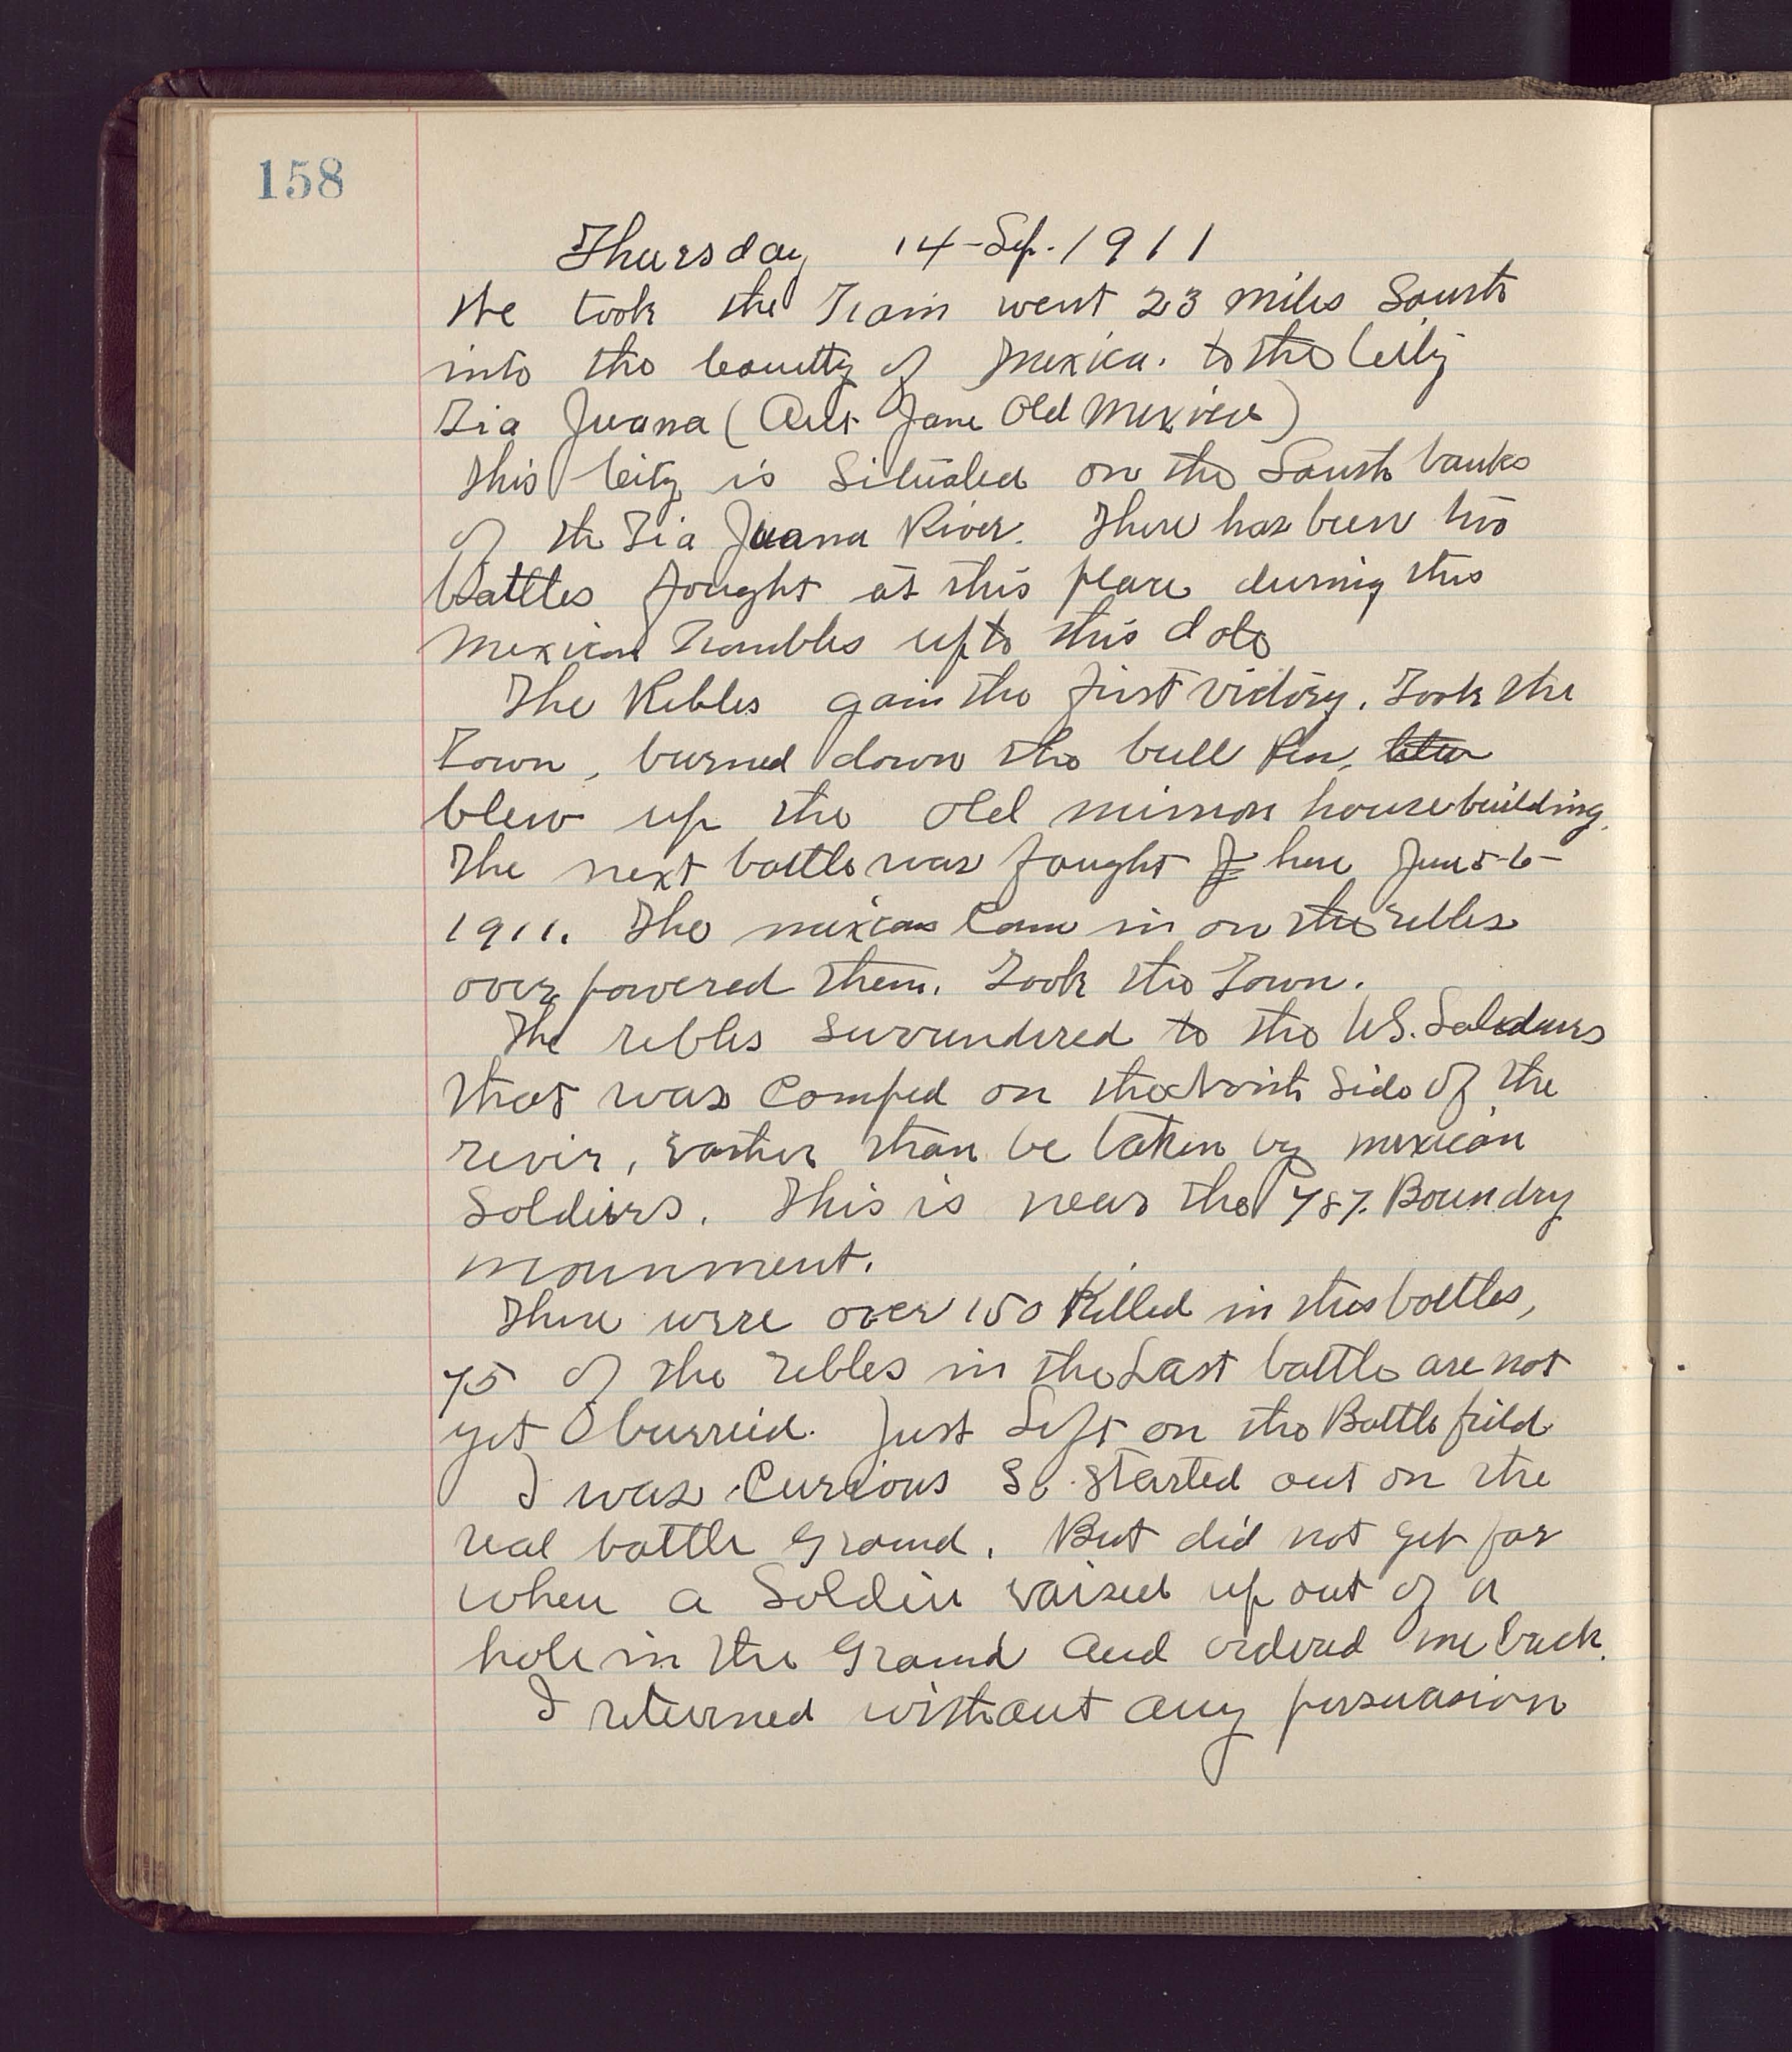 158
Thursday 14-Sep. 1911
We took the Train went 23 miles South
into the Country of Mexico. to the City
Tia Juana (Ant Jane Old Mexico)
This City is Situated on the South banks
of the Tia Juana River. There has been two
Battles fought at this place during this
Mexican Troubles up to this date
The Rebles gain the first victory. Took the
Town, burned down the bull Pen,
blew up the old mission house building.
The next battle was fought here June 5-6-
1911. The mexicans Came in on the rebles
over powered them. Took the Town.
The rebles surrundered to the U.S. Soldiers
that was Camped on the North Side of the
rever, rather than be taken by mexican
Soldiers. This is near the 787. Boundry
monument.
There were over 150 Killed in this battles,
75 of the rebles in the Last battle are not
yet burried. Just Left on the Battle field
I was Curious So started out on the
real battle Ground. But did not get far
when a Soldier raised up out of a
hole in the Ground and ordered me back.
I returned without any persuasion